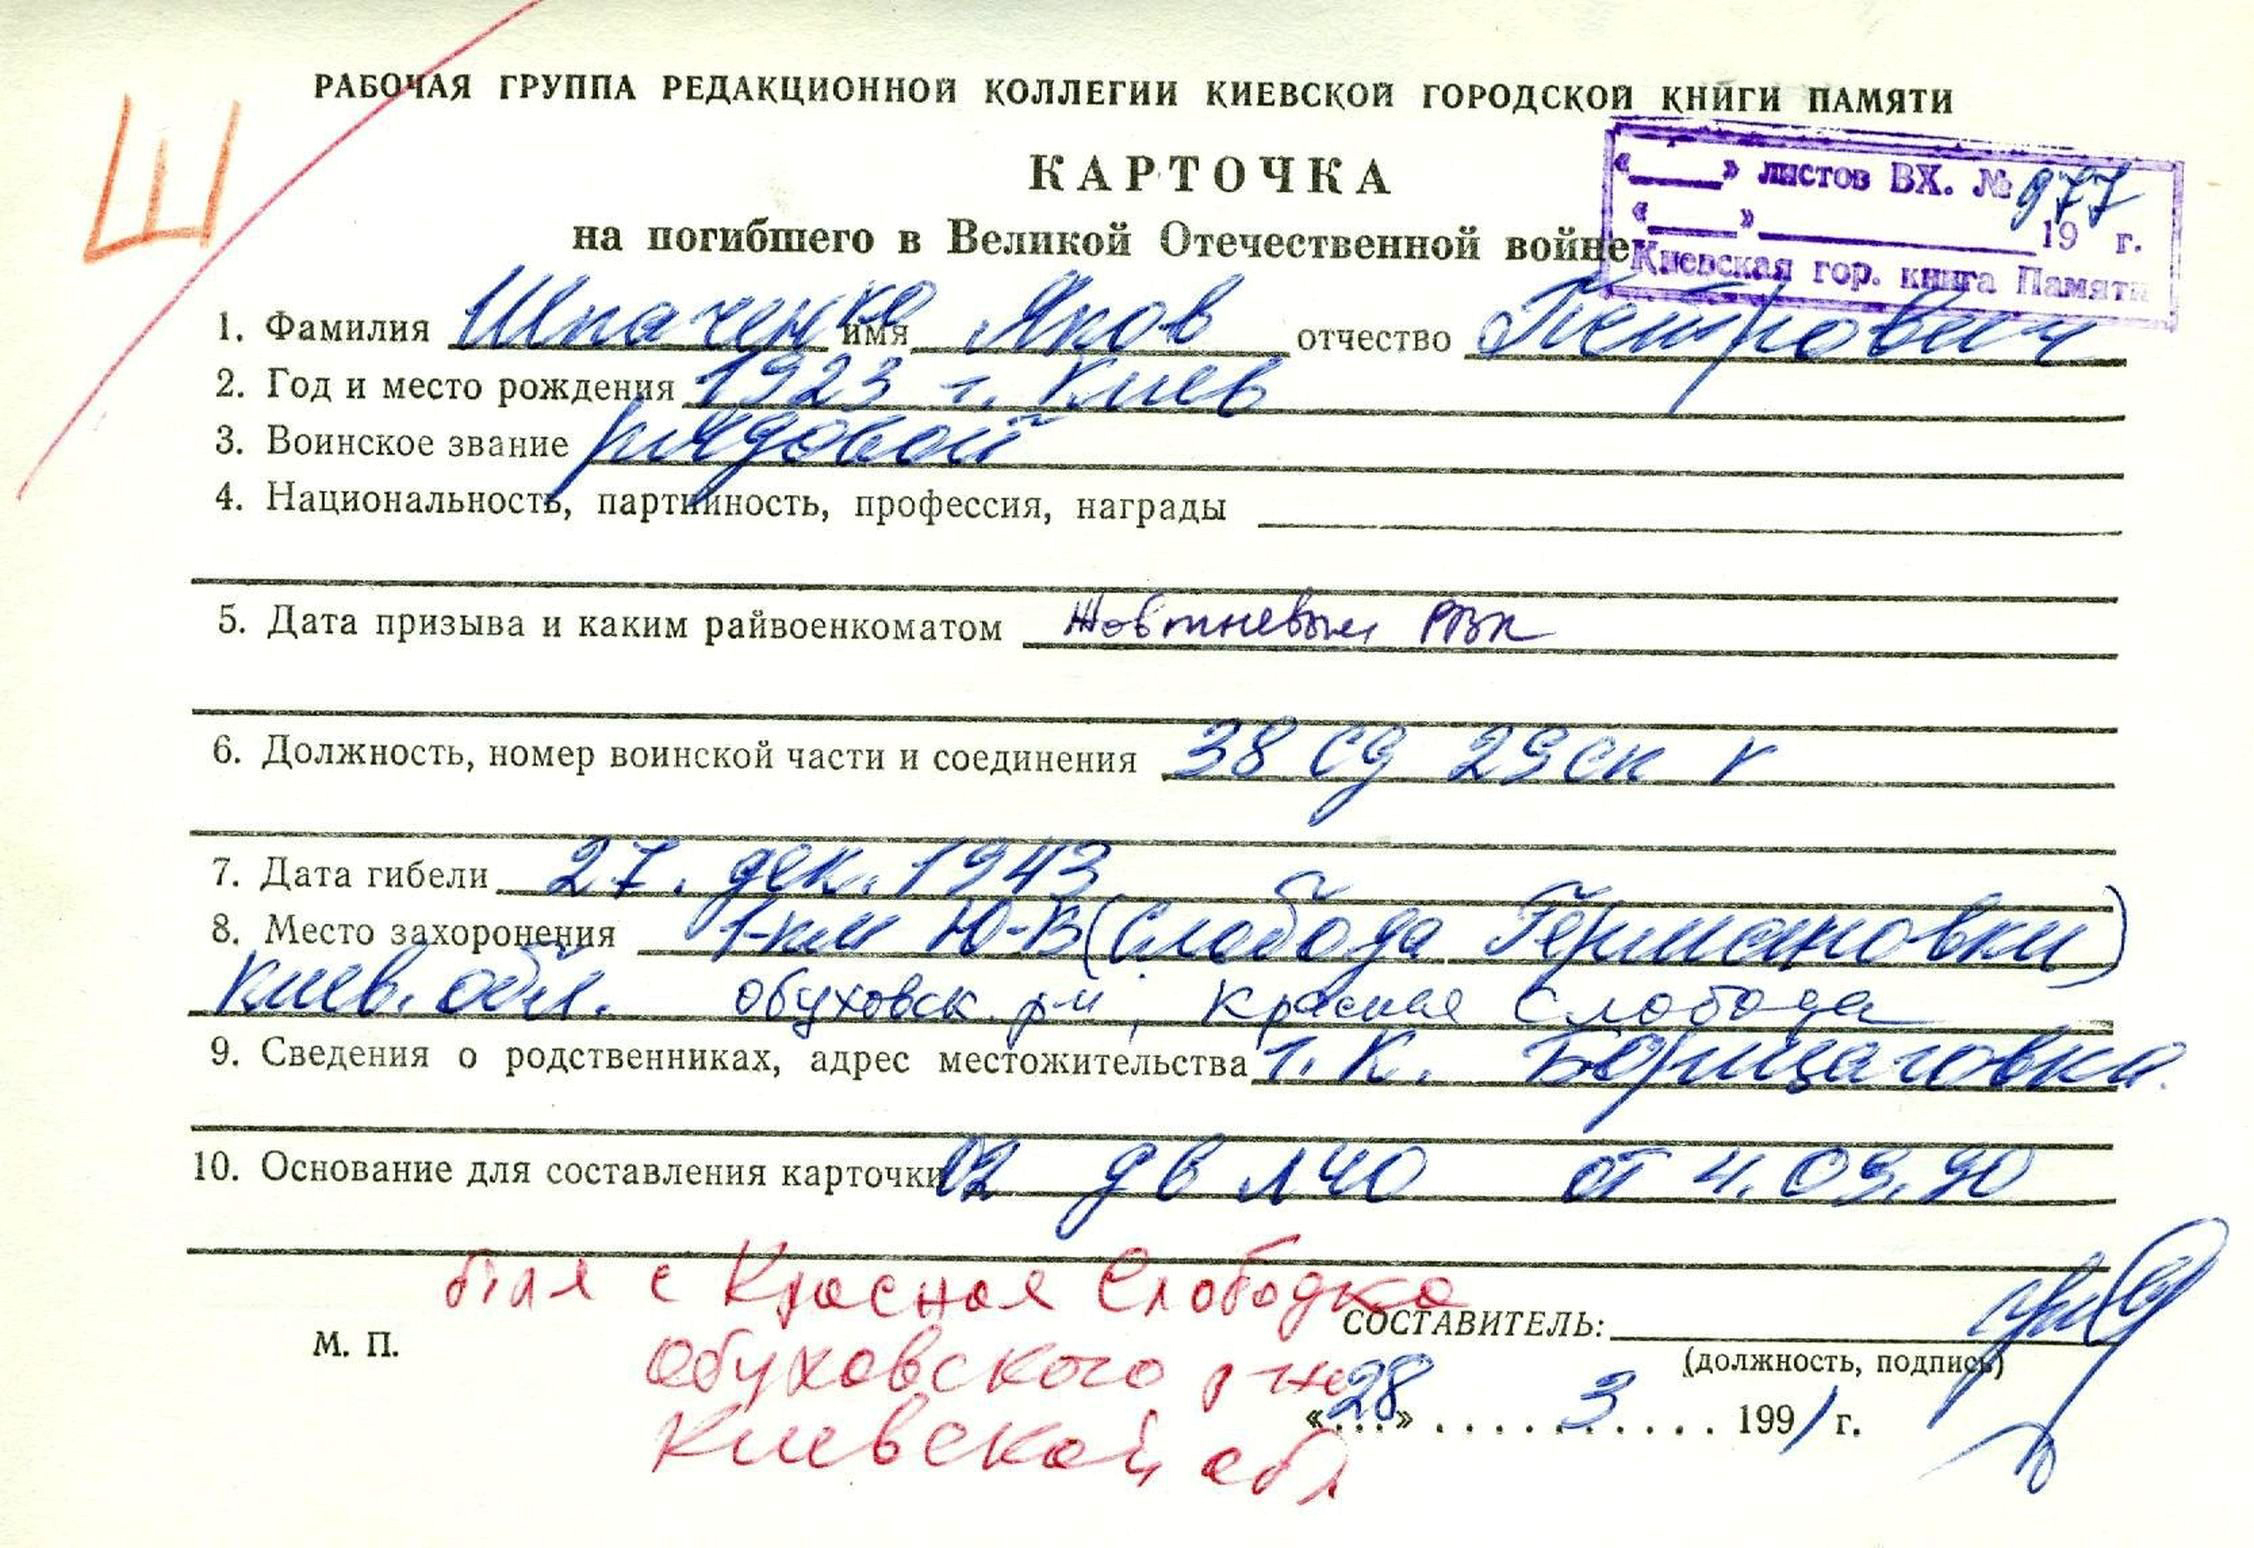 РАБОЧАЯ ГРУППА РЕДАКЦИОННОЙ КОЛЛЕГИИ КИЕВСКОЙ ГОРОДСКОЙ КНИГИ ПАМЯТИ
Ш
КАРТОЧКА
на погибшего в Великой Отечественной войне
«___» листов ВХ. № 977
«___» ______ 19 г.
Киевская гор. книга Памяти
1. Фамилия Шпаченко имя Яков отчество Петрович
2. Год и место рождения 1923 г. Киев
3. Воинское звание рядовой
4. Национальность, партийность, профессия, награды
5. Дата призыва и каким райвоенкоматом Жовтневым РВК
6. Должность, номер воинской части и соединения 38 сд 29 ск
7. Дата гибели 27. дек. 1943
8. Место захоронения 1-км Ю-В (Слобода Германовки)
Киев. обл. Обуховск. р-н, Красная Слобода
9. Сведения о родственниках, адрес местожительства г. К. Борщаговка.
10. Основание для составления карточки 02 от 4.09.90
біля с Красная Слободка
Обуховского р-на
Киевской обл
М. П.
СОСТАВИТЕЛЬ:
(должность, подпись)
«28» 3 1991 г.